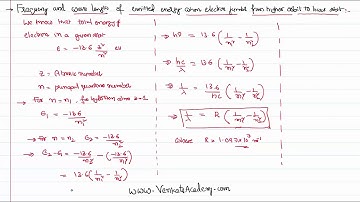 → Frequency and wave length of emitted energy when electron jumps from higher orbit to lower orbit:-
We know that total energy of
electron in a given orbit
E = -13.6 z²/n² eV
Z = Atomic number
n = principal quantum number
→ For n = n₁ for hydrogen atom z=1
E₁ = -13.6/n₁²
→ For n = n₂ E₂ = -13.6/n₂²
→ E₂-E₁ = -13.6/n₂² - (-13.6/n₁²)
= 13.6 (1/n₁² - 1/n₂²)
→ hν = 13.6 (1/n₁² - 1/n₂²)
→ hc/λ = 13.6 (1/n₁² - 1/n₂²)
→ 1/λ = 13.6/hc (1/n₁² - 1/n₂²)
→ 1/λ = R (1/n₁² - 1/n₂²)
where R = 1.097×10⁷ m⁻¹
www.VenkatsAcademy.com